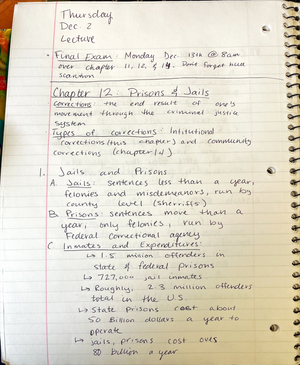 Thursday
Dec. 2
Lecture
• Final Exam: Monday Dec. 13th @ 8am
over chapter 11, 12, & 14. Don't forget
scantron
Chapter 12: Prisons & Jails
corrections: the end result of one's
movement through the criminal justice
system
Types of corrections: Intitutional
corrections (this chapter) and community
corrections (chapter 14)
1. Jails and Prisons
A. Jails: sentences less than a year,
felonies and misdemeanors, run by
county level (sherriffs)
B. Prisons: sentences more than a
year, only felonies, run by
Federal correctional agency
C. Inmates and Expenditures:
↳ 1.5 million offenders in
state & federal prisons
↳ 727,000 jail inmates
↳ Roughly, 2.3 million offenders
total in the U.S.
↳ State prisons cost about
50 Billion dollars a year to
operate
↳ Jails, prisons cost over
80 billion a year